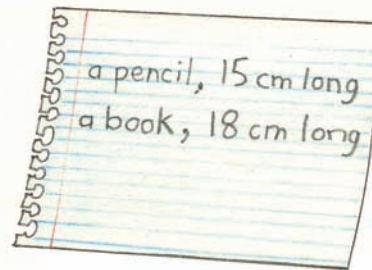 a pencil, 15 cm long
a book, 18 cm long